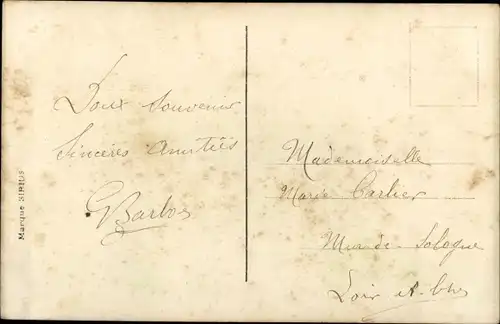 Doux souvenir
Sincères Amitiés
GBarbos
Mademoiselle
Marie Carlier
Mur-de-Sologne
Loir et Cher
Marque SIRIUS